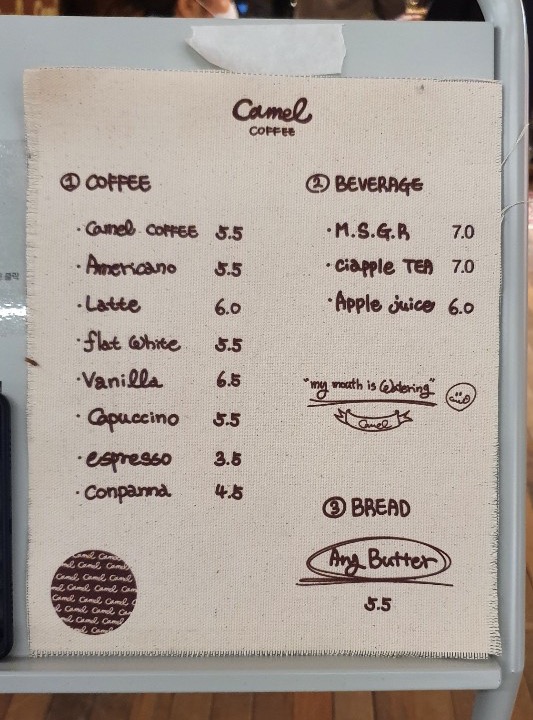 Camel
COFFEE
① COFFEE
· Camel COFFEE 5.5
· Americano 5.5
· Latte 6.0
· flat white 5.5
· Vanilla 6.5
· Capuccino 5.5
· espresso 3.5
· Conpanna 4.5
② BEVERAGE
· M.S.G.R 7.0
· ciapple TEA 7.0
· Apple juice 6.0
"my mouth is watering"
Camel
③ BREAD
Ang Butter
5.5
Camel Camel
Camel Camel
Camel Camel
Camel Camel
Camel Camel
Camel Camel
Camel